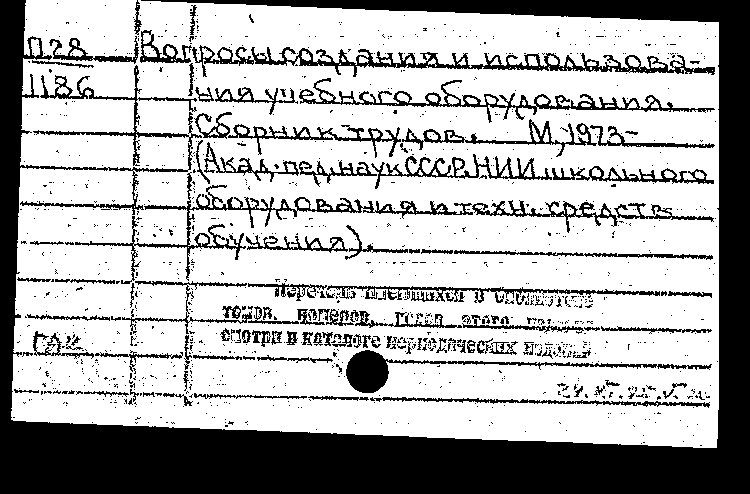 П28 Вопросы создания и использова-
1186 ния учебного оборудования.
Сборник трудов. М, 1973-
(Акад. пед. наук СССР, НИИ школьного
оборудования и техн. средств
обучения).
Перечень имеющихся в библиотеке
томов, номеров, годов этого
смотри в каталоге периодических изданий